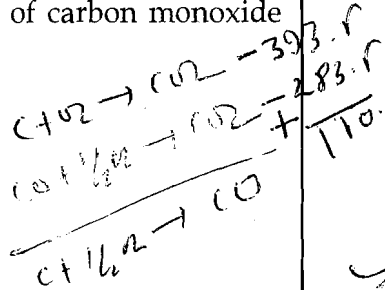 of carbon monoxide
C+O2 → CO2 -393.5
CO+1/2O2 → CO2 -283.5
+ 110.
C+1/2O2 → CO